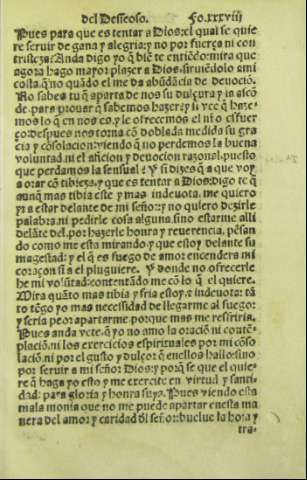 del Desseoso. Fo.xxxviij
Pues para que es tentar a Dios: el qual se quie
re seruir de gana y alegria: y no por fuerça ni con
tristeza? Anda digo yo q̃ biẽ te entiẽdo: mira que
agora hago mayor plazer a Dios, siruiẽdolo a mi
costa, q̃ no quãdo el me da abũdãcia de deuociõ.
No sabes tu q̃ aparta de nos su dulçura y la ascõ
de, para prouar q̃ sabemos hazer? y si vee q̃ haze-
mos lo q̃ en nos es, y le ofrecemos el nr̃o esfuer
ço: despues nos torna cõ doblada medida su gra
cia y cõsolacion: viendo q̃ no perdemos la buena
voluntad, ni el aficion y deuocion razonal, puesto
que perdamos la sensual? Y si dizes q̃ a que voy
a orar cõ tibieza, y que es tentar a Dios: digo te q̃
aunq̃ mas tibia este y mas indeuota, me quiero
yr a estar delante de mi señor: y no quiero dezirle
palabra, ni pedirle cosa alguna, sino estarme alli
delãte del, por hazerle honra y reuerencia, pẽsan
do como me esta mirando, y que estoy delante su
magestad: y el q̃ es fuego de amor encendera mi
coraçon si a el pluguiere. Y donde no ofrecerle
he mi volũtad: contentãdo me cõ lo q̃ el quiere.
Mira quãto mas tibia y fria estoy, e indeuota: tã
to tẽgo yo mas necessidad de llegarme al fuego:
y seria peor apartarme, porque mas me resfriria.
Pues anda vete, q̃ yo no amo la oraciõ ni contẽ-
placiõ, ni los exercicios espirituales por mi cõso
laciõ, ni por el gusto y dulçor q̃ en ellos hallo: sino
por seruir a mi señor Dios: y porq̃ se que el quie-
re q̃ haga yo esto y me exercite en virtud y santi-
dad: para gloria y honra suya. Pues viendo esta
mala monia que no me puede apartar enesta ma
nera del amor y caridad dl̃ señor: buelue la hoja y
tra-